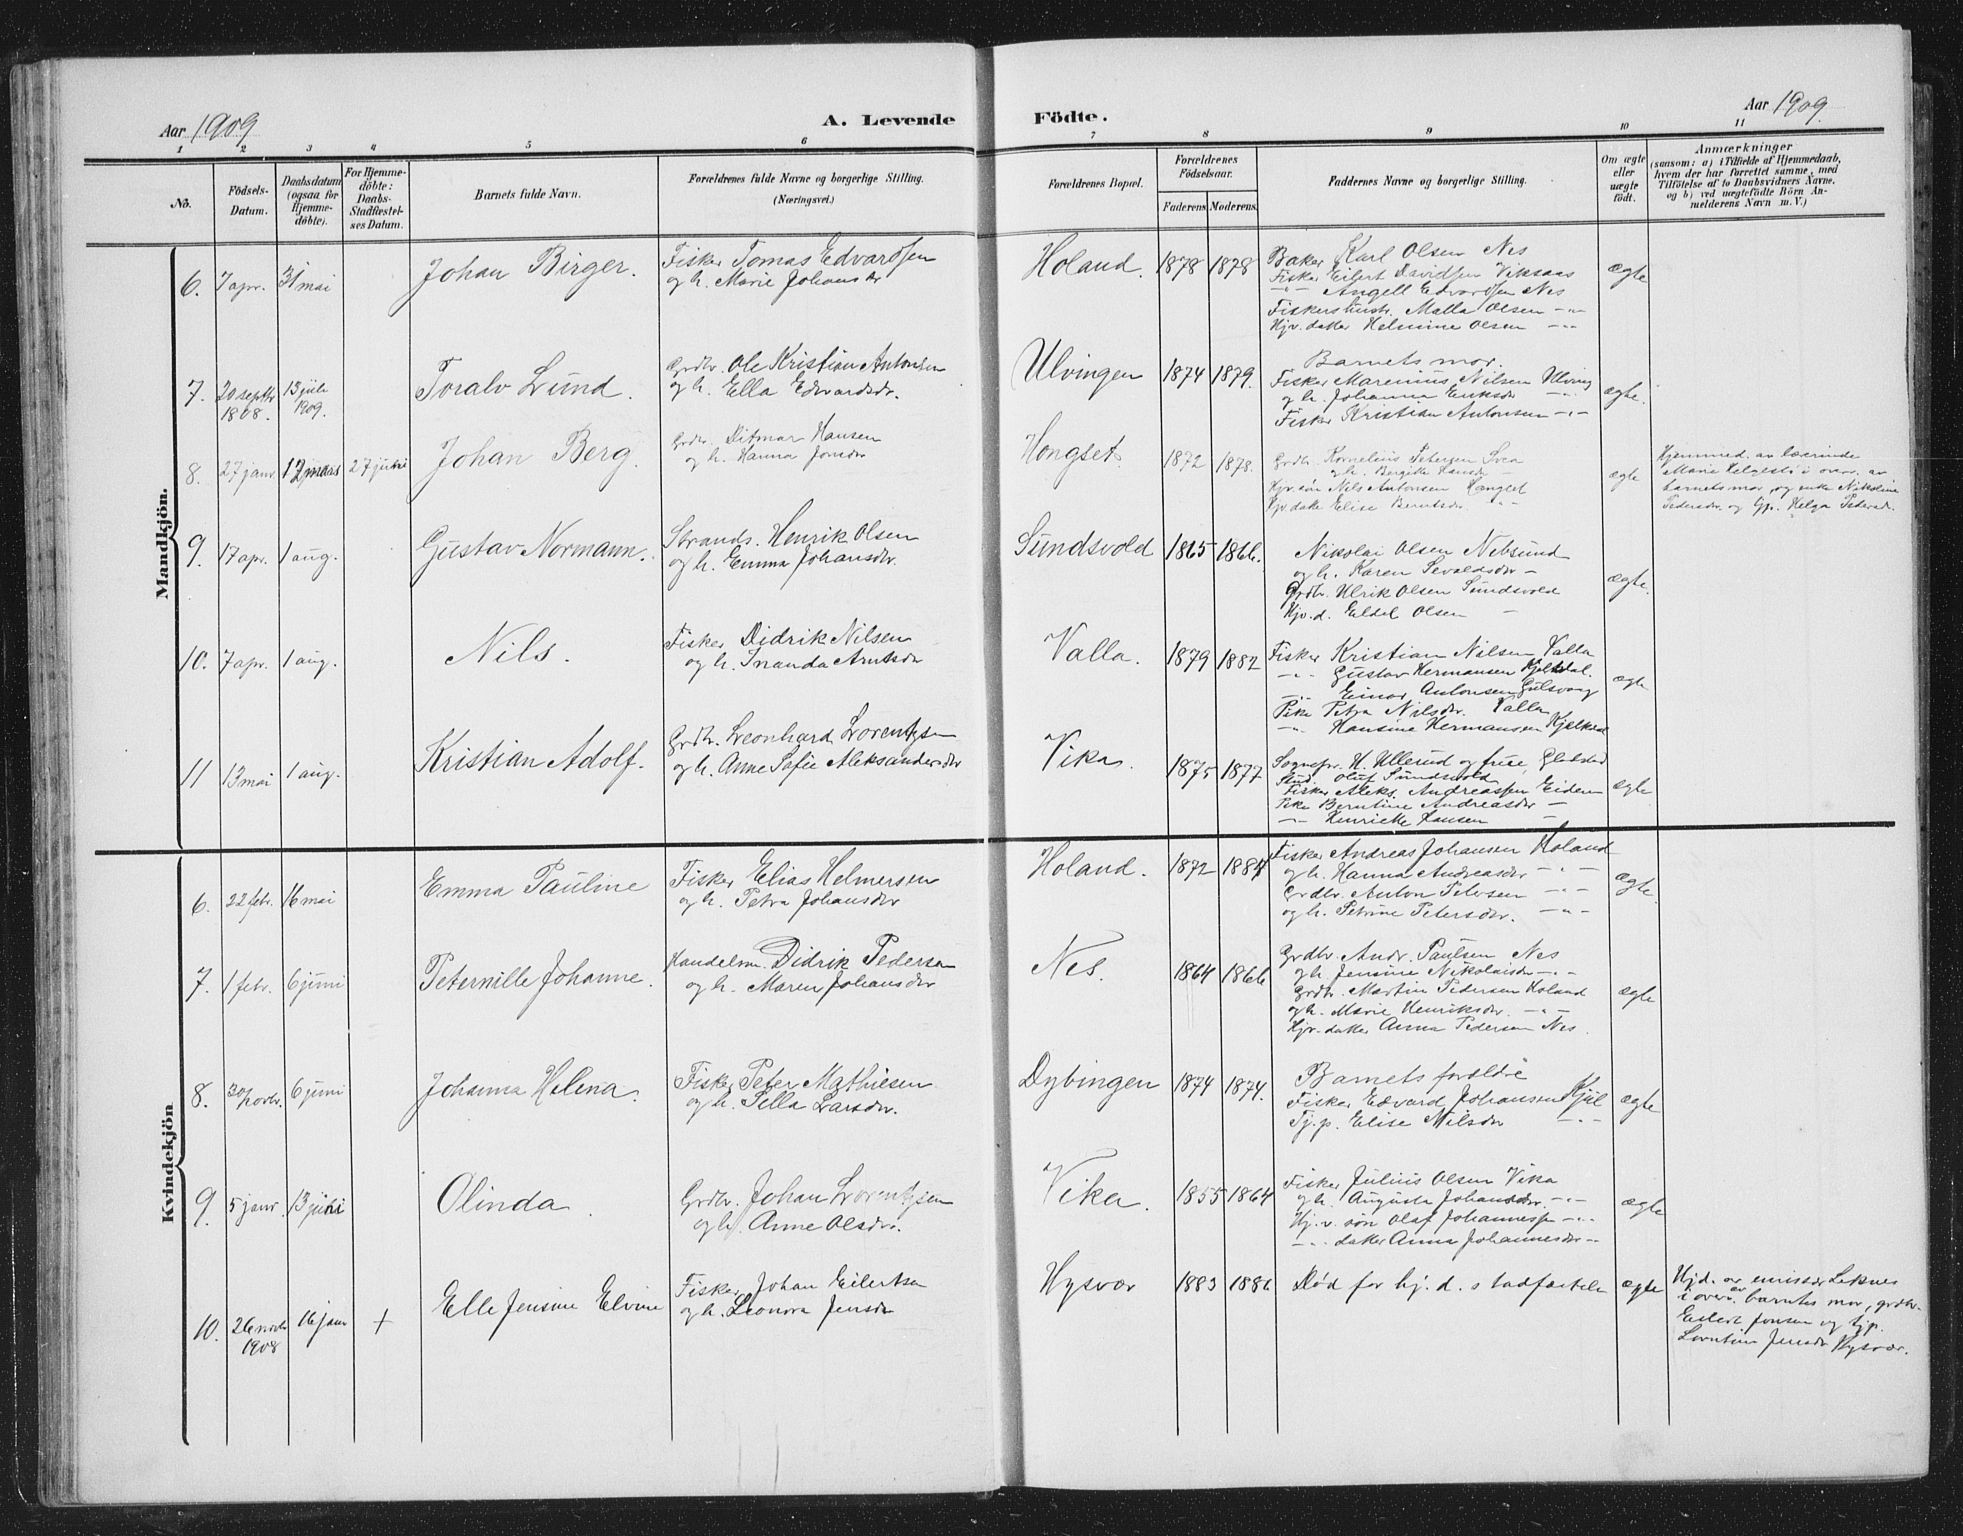 Aar 1909
A. Levende Födte.
Aar 1909.
1 2 3 4 5 6 7 8 9 10 11
No.
Födsels-Datum.
Daabsdatum (ogsaa for Hjemme-döbte).
For Hjemme-döbte: Daabs-Stadfæstel-ses Datum.
Barnets fulde Navn.
Forældrenes fulde Navne og borgerlige Stilling. (Næringsvei.)
Forældrenes Bopæl.
Forældrenes Födselsaar.
Faderens. Moderens.
Faddernes Navne og borgerlige Stilling.
Om ægte eller uægte födt.
Anmærkninger
(saasom: a) i Tilfælde af Hjemmedaab,
hvem der har forrettet samme, med
Tilföielse af to Daabsvidners Navne,
og b) ved uægtefödte Börn An-
melderens Navn m. V.)
Mandkjön.
6. 7 apr. 31 mai Johan Birger. Fisker Tomas Edvardsen
og h. Marie Johansdr
Holand. 1878 1878
Baker Karl Olsen Nes
Fisker Eilert Davidsen Viksaas
-"- Angell Edvardsen Nes
Fiskershustr. Malla Olsen -"-
Hjv. datter Helmine Olsen -"-
ægte
7. 20 septbr 1808. 13 juli 1909. Toralv Lund. Grdbr. Ole Kristian Antonsen
og h. Ella Edvardsdr.
Ulvingen 1874 1879.
Barnets mor.
Fisker Marenius Nilsen Ulving
og h. Johanna Eriksdr -"-
Fisker Kristian Antonsen -"-
ægte.
8. 27 janr 12 mars 27 juni Johan Berg. Grdbr. Ditmar Hansen
og h. Hanna Jonsdr
Hongset 1872 1878.
Grdbr. Kornelius Petersen
og h. Bergitte Hansdr -
Hjv. søn Nils Antonsen Hongset
Hjv. datter Elise Berntsdr. -"-
ægte
Hjemmed. av lærerinde
Marie Helgesti i overv. av
barnets mor, og enke Nikoline
Pedersdr. og Tjp. Helga Pedersdr.
9. 17 apr. 1 aug. Gustav Normann. Strands. Henrik Olsen
og h. Emma Johansdr.
Sundsvold 1865 1866.
Nikolai Olsen Nebsund
og h. Karen Sevaldsdr -
Grdbr. Ulrik Olsen Sundsvold
Hjv. d. Eldel Olsen -
ægte.
10. 7 apr. 1 aug. Nils. Fisker Didrik Nilsen
og h. Inanda Arntsdr
Valla. 1879 1882
Fisker Kristian Nilsen Valla
-"- Gustav Hermansen
-"- Einar Antonsen Gulsvaag
Pike Petra Nilsdr. Valla
-"- Hansine Hermansen
ægte
11 13 mai 1 aug. Kristian Adolf. Grdbr. Leonhard Lorentzen
og h. Anne Sofie Aleksandersdr
Vika. 1875 1877
Sognepr. H. Ullerud og frue,
Stud. Oluf Sundsvold
Fisker Aleks. Andreassen Eidem
Pike Berntine Andreasdr -
-"- Henriette Hansen
ægte
Kvindekjön
6. 22 febr. 16 mai Emma Pauline Fisker Elias Helmersen
og h. Petra Johansdr
Holand. 1872 1884
Fisker Andreas Johansen Holand
og h. Hanna Andreasdr -"-
Grdbr. Anton Petersen -"-
og h. Petrine Petersdr. -"-
ægte
7. 1 febr. 6 juni Peternille Johanne. Handelsm. Didrik Pedersen
og h. Maren Johansdr
Nes. 1864 1866
Grdbr. Andr. Paulsen Nes
og h. Jensine Nikolaisdr -"-
Grdbr. Martin Pedersen Holand
og h. Marie Henriksdr. -"-
Hjv. datter Anna Pedersen Nes.
ægte
8. 30 novbr. 6 juni Johanna Helena. Fisker Peter Mathiesen
og h. Pella Larsdr.
Dybingen 1874 1874.
Barnets forældre
Fisker Edvard Johansen Kjul
Tj.p. Elise Nilsdr -"-
ægte
9. 5 janr. 13 juni Olinda. Grdbr. Johan Lorentzen
og h. Anne Olsdr.
Vika. 1855 1864
Fisker Julius Olsen Vika
og h. Augusta Johansdr. -"-
Hj. v. søn Olaf Johannessen -"-
-"- datter Anna Johannesdr -"-
ægte
10. 26 novbr 1908 16 janr + Elle Jensine Elvine Fisker Johan Eilertsen
og h. Leonora Jensdr
Hysvær 1883 1886 Død før hj. d. stadfæstelse ægte
Hjd. av emissær Leknes
i overv. av barnets mor, grdbr.
Eilert Jonsen og tjp.
Lorntine Jensdr Hysvær.